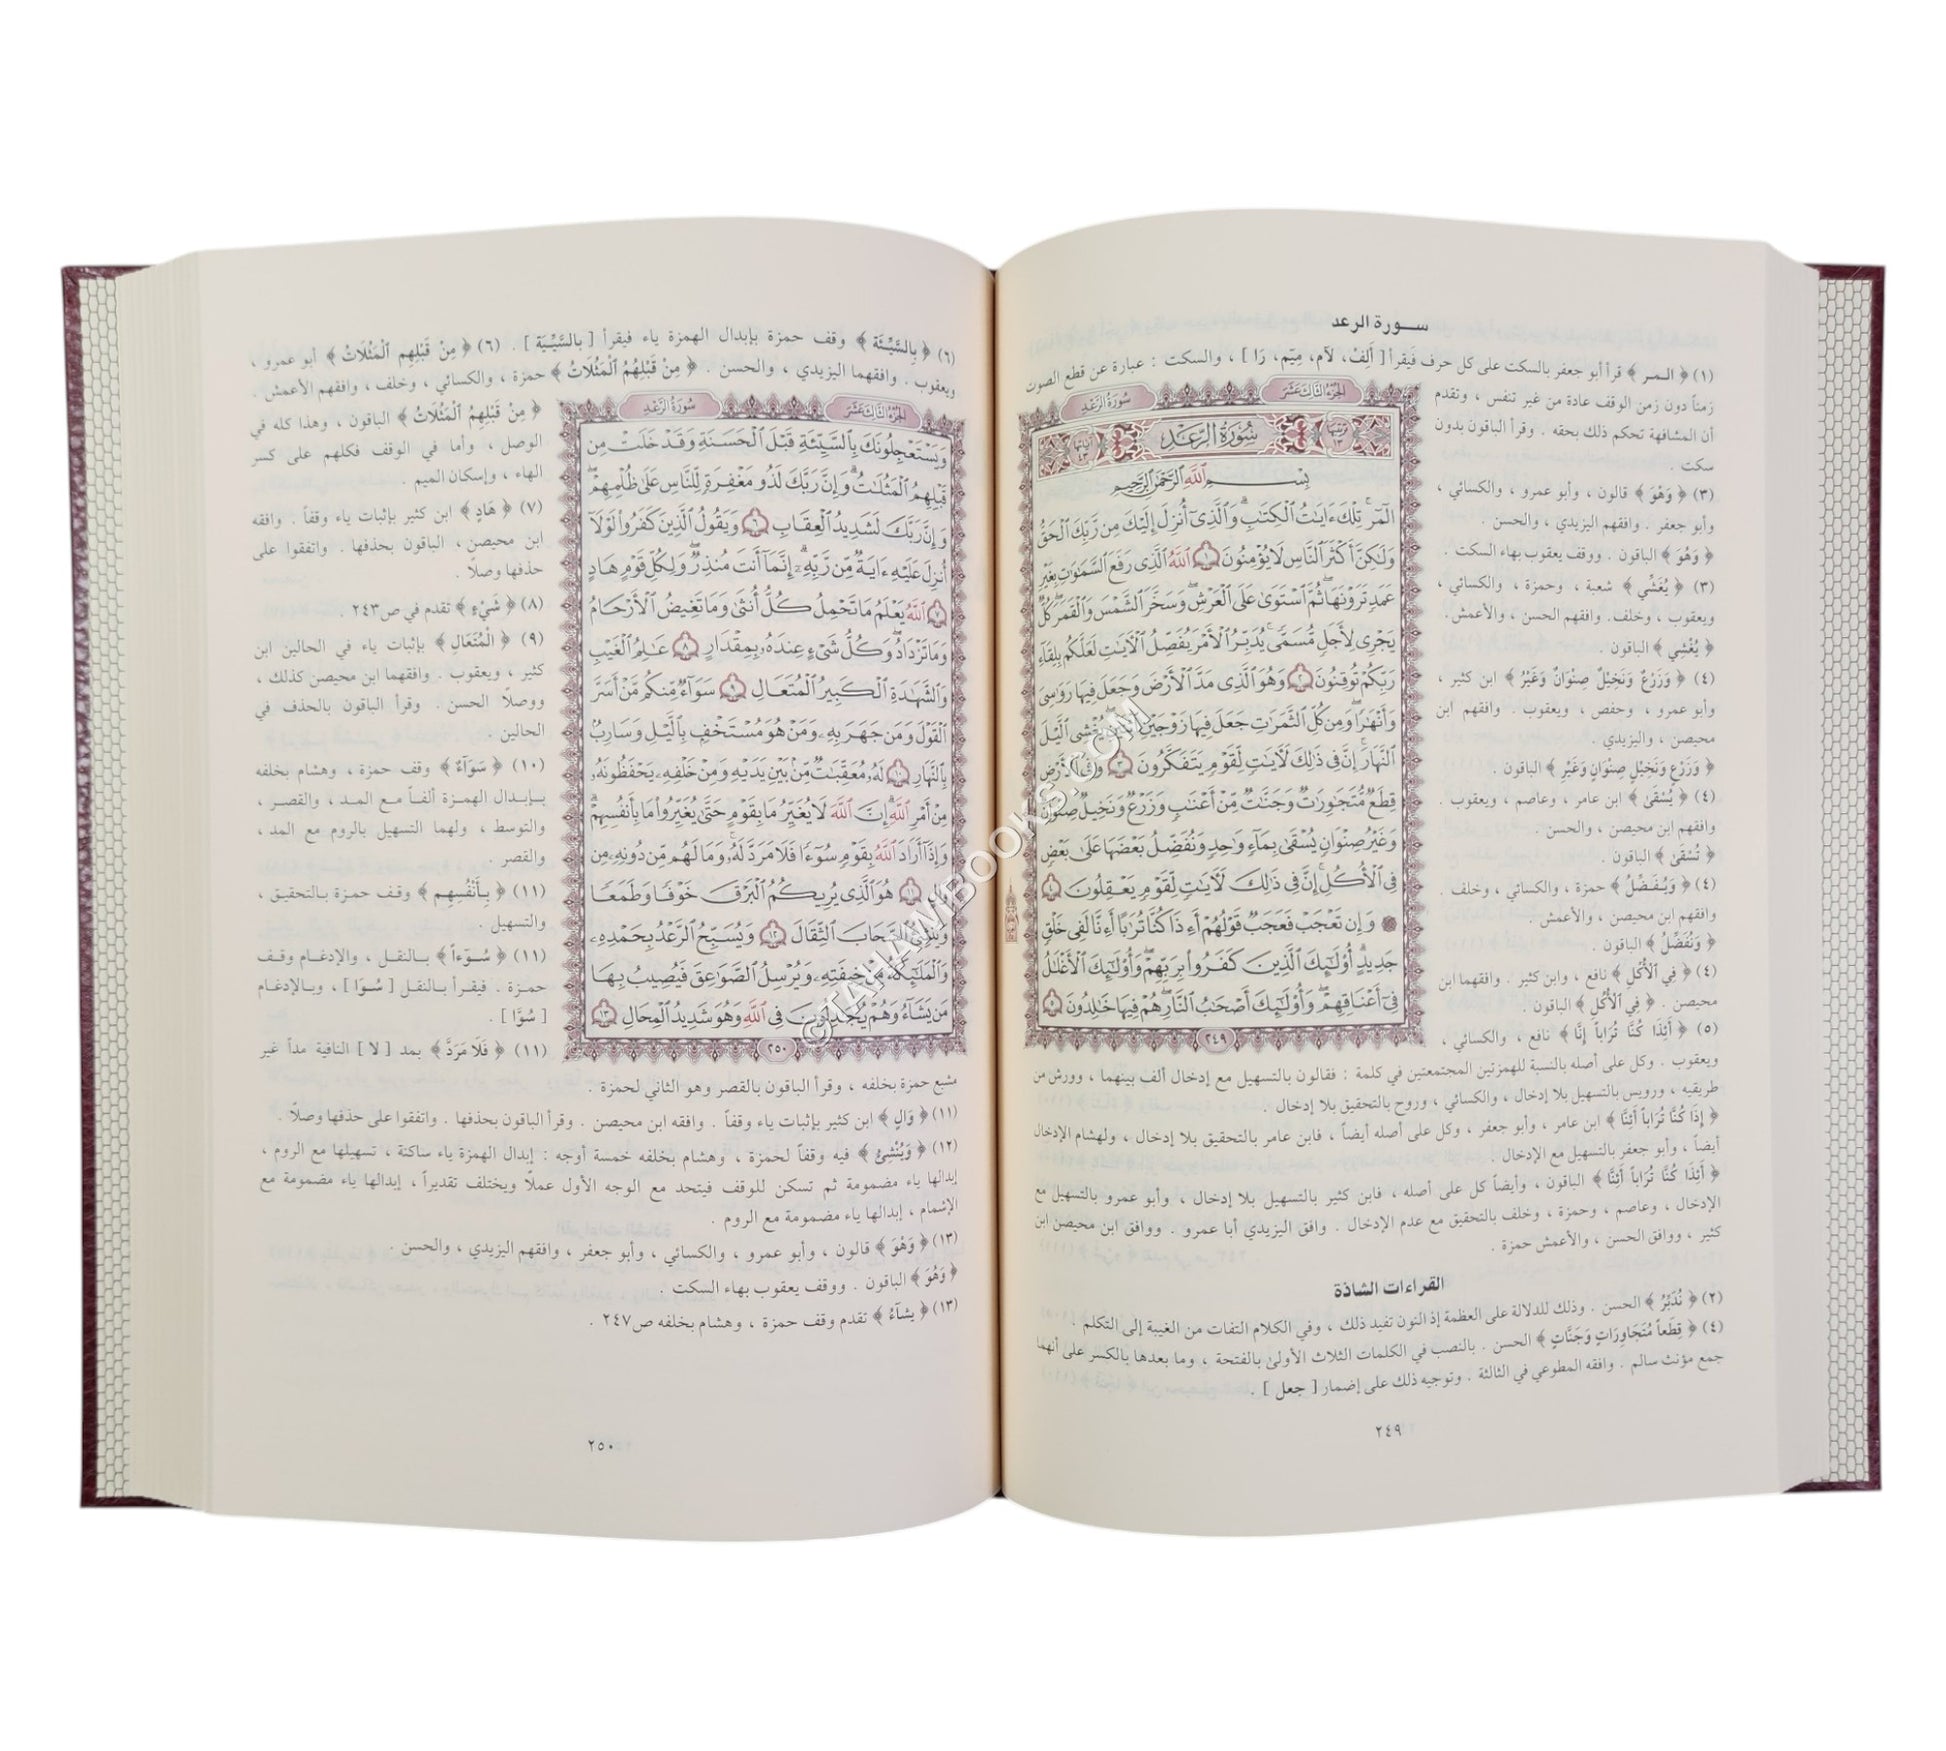 سورة الرعد
(١) ﴿ الـمر ﴾ قرأ أبو جعفر بالسكت على كل حرف فيقرأ [ أَلِفْ، لآم، مِيّم، رَا ] ، والسكت : عبارة عن قطع الصوت
زمناً دون زمن الوقف عادة من غير تنفس ، وتقدم
أن المشافهة تحكم ذلك بحقه . وقرأ الباقون بدون
سكت .
(٣) ﴿ وَهْوَ ﴾ قالون ، وأبو عمرو ، والكسائي ،
وأبو جعفر . وافقهم اليزيدي ، والحسن .
﴿ وَهُوَ ﴾ الباقون . ووقف يعقوب بهاء السكت .
(٣) ﴿ يُغَشِّي ﴾ شعبة ، وحمزة ، والكسائي ،
ويعقوب ، وخلف. وافقهم الحسن ، والأعمش.
﴿ يُغْشِي ﴾ الباقون .
(٤) ﴿ وَزَرْعٌ وَنَخِيْلٌ صِنْوَانٌ وَغَيْرُ ﴾ ابن كثير ،
وأبو عمرو ، وحفص ، ويعقوب . وافقهم ابن
محيصن ، واليزيدي .
﴿ وَزَرْعٍ وَنَخِيْلٍ صِنْوَانٍ وَغَيْرِ ﴾ الباقون .
(٤) ﴿ يُسْقَىٰ ﴾ ابن عامر ، وعاصم ، ويعقوب .
وافقهم ابن محيصن ، والحسن .
﴿ تُسْقَىٰ ﴾ الباقون .
(٤) ﴿ وَيُفَضِّلُ ﴾ حمزة ، والكسائي ، وخلف .
وافقهم ابن محيصن ، والأعمش .
﴿ وَنُفَضِّلُ ﴾ الباقون .
(٤) ﴿ فِي ٱلْأُكْلِ ﴾ نافع ، وابن كثير . وافقهما ابن
محيصن . ﴿ فِي ٱلْأُكُلِ ﴾ الباقون .
(٥) ﴿ أَئِذَا كُنَّا تُرَاباً إِنَّا ﴾ نافع ، والكسائي ،
ويعقوب . وكل على أصله بالنسبة للهمزتين المجتمعتين في كلمة : فقالون بالتسهيل مع إدخال ألف بينهما ، وورش من
طريقيه ، ورويس بالتسهيل بلا إدخال ، والكسائي ، وروح بالتحقيق بلا إدخال .
﴿ إِذَا كُنَّا تُرَاباً أَئِنَّا ﴾ ابن عامر ، وأبو جعفر ، وكل على أصله أيضاً ، فابن عامر بالتحقيق بلا إدخال ، ولهشام الإدخال
أيضاً ، وأبو جعفر بالتسهيل مع الإدخال .
﴿ أَئِذَا كُنَّا تُرَاباً أَئِنَّا ﴾ الباقون ، وأيضاً كل على أصله ، فابن كثير بالتسهيل بلا إدخال ، وأبو عمرو بالتسهيل مع
الإدخال ، وعاصم ، وحمزة ، وخلف بالتحقيق مع عدم الإدخال . وافق اليزيدي أبا عمرو . ووافق ابن محيصن ابن
كثير ، ووافق الحسن ، والأعمش حمزة .
القراءات الشاذة
(٢) ﴿ نُدَبِّرُ ﴾ الحسن . وذلك للدلالة على العظمة إذ النون تفيد ذلك ، وفي الكلام التفات من الغيبة إلى التكلم .
(٤) ﴿ قِطَعاً مُتَجَاوِرَاتٍ وَجَنَّاتٍ ﴾ الحسن . بالنصب في الكلمات الثلاث الأولىٰ بالفتحة ، وما بعدها بالكسر على أنهما
جمع مؤنث سالم . وافقه المطوعي في الثالثة . وتوجيه ذلك على إضمار [ جعل ] .
٢٤٩
الجزء الثالث عشر
سورة الرعد
ترتيبها ١٣
سُورَةُ الرَّعْدِ
آياتها ٤٣
بِسْمِ ٱللَّهِ ٱلرَّحْمَٰنِ ٱلرَّحِيمِ
الٓمٓرۚ تِلْكَ ءَايَٰتُ ٱلْكِتَٰبِۗ وَٱلَّذِىٓ أُنزِلَ إِلَيْكَ مِن رَّبِّكَ ٱلْحَقُّ
وَلَٰكِنَّ أَكْثَرَ ٱلنَّاسِ لَا يُؤْمِنُونَ ١ ٱللَّهُ ٱلَّذِى رَفَعَ ٱلسَّمَٰوَٰتِ بِغَيْرِ
عَمَدٍ تَرَوْنَهَاۖ ثُمَّ ٱسْتَوَىٰ عَلَى ٱلْعَرْشِۖ وَسَخَّرَ ٱلشَّمْسَ وَٱلْقَمَرَۖ كُلٌّ
يَجْرِى لِأَجَلٍ مُّسَمًّىۚ يُدَبِّرُ ٱلْأَمْرَ يُفَصِّلُ ٱلْءَايَٰتِ لَعَلَّكُم بِلِقَآءِ
رَبِّكُمْ تُوقِنُونَ ٢ وَهُوَ ٱلَّذِى مَدَّ ٱلْأَرْضَ وَجَعَلَ فِيهَا رَوَٰسِىَ
وَأَنْهَٰرًاۖ وَمِن كُلِّ ٱلثَّمَرَٰتِ جَعَلَ فِيهَا زَوْجَيْنِ ٱثْنَيْنِۖ يُغْشِى ٱلَّيْلَ
ٱلنَّهَارَۚ إِنَّ فِى ذَٰلِكَ لَءَايَٰتٍ لِّقَوْمٍ يَتَفَكَّرُونَ ٣ وَفِى ٱلْأَرْضِ
قِطَعٌ مُّتَجَٰوِرَٰتٌ وَجَنَّٰتٌ مِّنْ أَعْنَٰبٍ وَزَرْعٌ وَنَخِيلٌ صِنْوَانٌ
وَغَيْرُ صِنْوَانٍ يُسْقَىٰ بِمَآءٍ وَٰحِدٍ وَنُفَضِّلُ بَعْضَهَا عَلَىٰ بَعْضٍ
فِى ٱلْأُكُلِۚ إِنَّ فِى ذَٰلِكَ لَءَايَٰتٍ لِّقَوْمٍ يَعْقِلُونَ ٤
وَإِن تَعْجَبْ فَعَجَبٌ قَوْلُهُمْ أَءِذَا كُنَّا تُرَٰبًا أَءِنَّا لَفِى خَلْقٍ
جَدِيدٍۗ أُو۟لَٰٓئِكَ ٱلَّذِينَ كَفَرُوا۟ بِرَبِّهِمْۖ وَأُو۟لَٰٓئِكَ ٱلْأَغْلَٰلُ
فِىٓ أَعْنَاقِهِمْۖ وَأُو۟لَٰٓئِكَ أَصْحَٰبُ ٱلنَّارِۖ هُمْ فِيهَا خَٰلِدُونَ ٥
٢٤٩
(٦) ﴿ بِالسَّيِّئَة ﴾ وقف حمزة بإبدال الهمزة ياء فيقرأ [ بالسَّيِّيَة ] . (٦) ﴿ مِنْ قَبْلِهِمِ ٱلْمَثُلَاتُ ﴾ أبو عمرو ،
ويعقوب . وافقهما اليزيدي ، والحسن . ﴿ مِنْ قَبْلِهُمُ ٱلْمَثُلَاتُ ﴾ حمزة ، والكسائي ، وخلف ، وافقهم الأعمش .
﴿ مِنْ قَبْلِهِمُ ٱلْمَثُلَاتُ ﴾ الباقون ، وهذا كله في
الوصل ، وأما في الوقف فكلهم على كسر
الهاء ، وإسكان الميم .
(٧) ﴿ هَادٍ ﴾ ابن كثير بإثبات ياء وقفاً . وافقه
ابن محيصن ، الباقون بحذفها . واتفقوا على
حذفها وصلاً .
(٨) ﴿ شَيْءٍ ﴾ تقدم في ص٢٤٣ .
(٩) ﴿ الْمُتَعَالِ ﴾ بإثبات ياء في الحالين ابن
كثير ، ويعقوب . وافقهما ابن محيصن كذلك ،
ووصلاً الحسن . وقرأ الباقون بالحذف في
الحالين .
(١٠) ﴿ سَوَآءٌ ﴾ وقف حمزة ، وهشام بخلفه
بإبدال الهمزة ألفاً مع المد ، والقصر ،
والتوسط ، ولهما التسهيل بالروم مع المد ،
والقصر .
(١١) ﴿ بِأَنْفُسِهِم ﴾ وقف حمزة بالتحقيق ،
والتسهيل .
(١١) ﴿ سُـوٓءاً ﴾ بالنقل ، والإدغام وقف
حمزة . فيقرأ بالنقل [ سُوَا ] ، وبالإدغام
[ سُوَّا ] .
(١١) ﴿ فَلَا مَرَدَّ ﴾ بمد [ لا ] النافية مداً غير
مشبع حمزة بخلفه ، وقرأ الباقون بالقصر وهو الثاني لحمزة .
(١١) ﴿ وَالٍ ﴾ ابن كثير بإثبات ياء وقفاً . وافقه ابن محيصن . وقرأ الباقون بحذفها . واتفقوا على حذفها وصلاً .
(١٢) ﴿ وَيُنْشِئُ ﴾ فيه وقفاً لحمزة ، وهشام بخلفه خمسة أوجه : إبدال الهمزة ياء ساكنة ، تسهيلها مع الروم ،
إبدالها ياء مضمومة ثم تسكن للوقف فيتحد مع الوجه الأول عملاً ويختلف تقديراً ، إبدالها ياء مضمومة مع
الإشمام ، إبدالها ياء مضمومة مع الروم .
(١٣) ﴿ وَهْوَ ﴾ قالون ، وأبو عمرو ، والكسائي ، وأبو جعفر ، وافقهم اليزيدي ، والحسن .
﴿ وَهُوَ ﴾ الباقون . ووقف يعقوب بهاء السكت .
(١٣) ﴿ يشآءُ ﴾ تقدم وقف حمزة ، وهشام بخلفه ص٢٤٧ .
٢٥٠
الجزء الثالث عشر
سورة الرعد
وَيَسْتَعْجِلُونَكَ بِٱلسَّيِّئَةِ قَبْلَ ٱلْحَسَنَةِ وَقَدْ خَلَتْ مِن
قَبْلِهِمُ ٱلْمَثُلَٰتُۗ وَإِنَّ رَبَّكَ لَذُو مَغْفِرَةٍ لِّلنَّاسِ عَلَىٰ ظُلْمِهِمْۖ
وَإِنَّ رَبَّكَ لَشَدِيدُ ٱلْعِقَابِ ٦ وَيَقُولُ ٱلَّذِينَ كَفَرُوا۟ لَوْلَآ
أُنزِلَ عَلَيْهِ ءَايَةٌ مِّن رَّبِّهِۦٓۗ إِنَّمَآ أَنتَ مُنذِرٌۖ وَلِكُلِّ قَوْمٍ هَادٍ
٧ ٱللَّهُ يَعْلَمُ مَا تَحْمِلُ كُلُّ أُنثَىٰ وَمَا تَغِيضُ ٱلْأَرْحَامُ
وَمَا تَزْدَادُۖ وَكُلُّ شَىْءٍ عِندَهُۥ بِمِقْدَارٍ ٨ عَٰلِمُ ٱلْغَيْبِ
وَٱلشَّهَٰدَةِ ٱلْكَبِيرُ ٱلْمُتَعَالِ ٩ سَوَآءٌ مِّنكُم مَّنْ أَسَرَّ
ٱلْقَوْلَ وَمَن جَهَرَ بِهِۦ وَمَنْ هُوَ مُسْتَخْفٍۭ بِٱلَّيْلِ وَسَارِبٌۢ
بِٱلنَّهَارِ ١٠ لَهُۥ مُعَقِّبَٰتٌ مِّنۢ بَيْنِ يَدَيْهِ وَمِنْ خَلْفِهِۦ يَحْفَظُونَهُۥ
مِنْ أَمْرِ ٱللَّهِۗ إِنَّ ٱللَّهَ لَا يُغَيِّرُ مَا بِقَوْمٍ حَتَّىٰ يُغَيِّرُوا۟ مَا بِأَنفُسِهِمْۗ
وَإِذَآ أَرَادَ ٱللَّهُ بِقَوْمٍ سُوٓءًا فَلَا مَرَدَّ لَهُۥۚ وَمَا لَهُم مِّن دُونِهِۦ مِن
وَالٍ ١١ هُوَ ٱلَّذِى يُرِيكُمُ ٱلْبَرْقَ خَوْفًا وَطَمَعًا
وَيُنشِئُ ٱلسَّحَابَ ٱلثِّقَالَ ١٢ وَيُسَبِّحُ ٱلرَّعْدُ بِحَمْدِهِۦ
وَٱلْمَلَٰٓئِكَةُ مِنْ خِيفَتِهِۦ وَيُرْسِلُ ٱلصَّوَٰعِقَ فَيُصِيبُ بِهَا
مَن يَشَآءُ وَهُمْ يُجَٰدِلُونَ فِى ٱللَّهِ وَهُوَ شَدِيدُ ٱلْمِحَالِ ١٣
٢٥٠
©TAHAMIBOOKS.COM